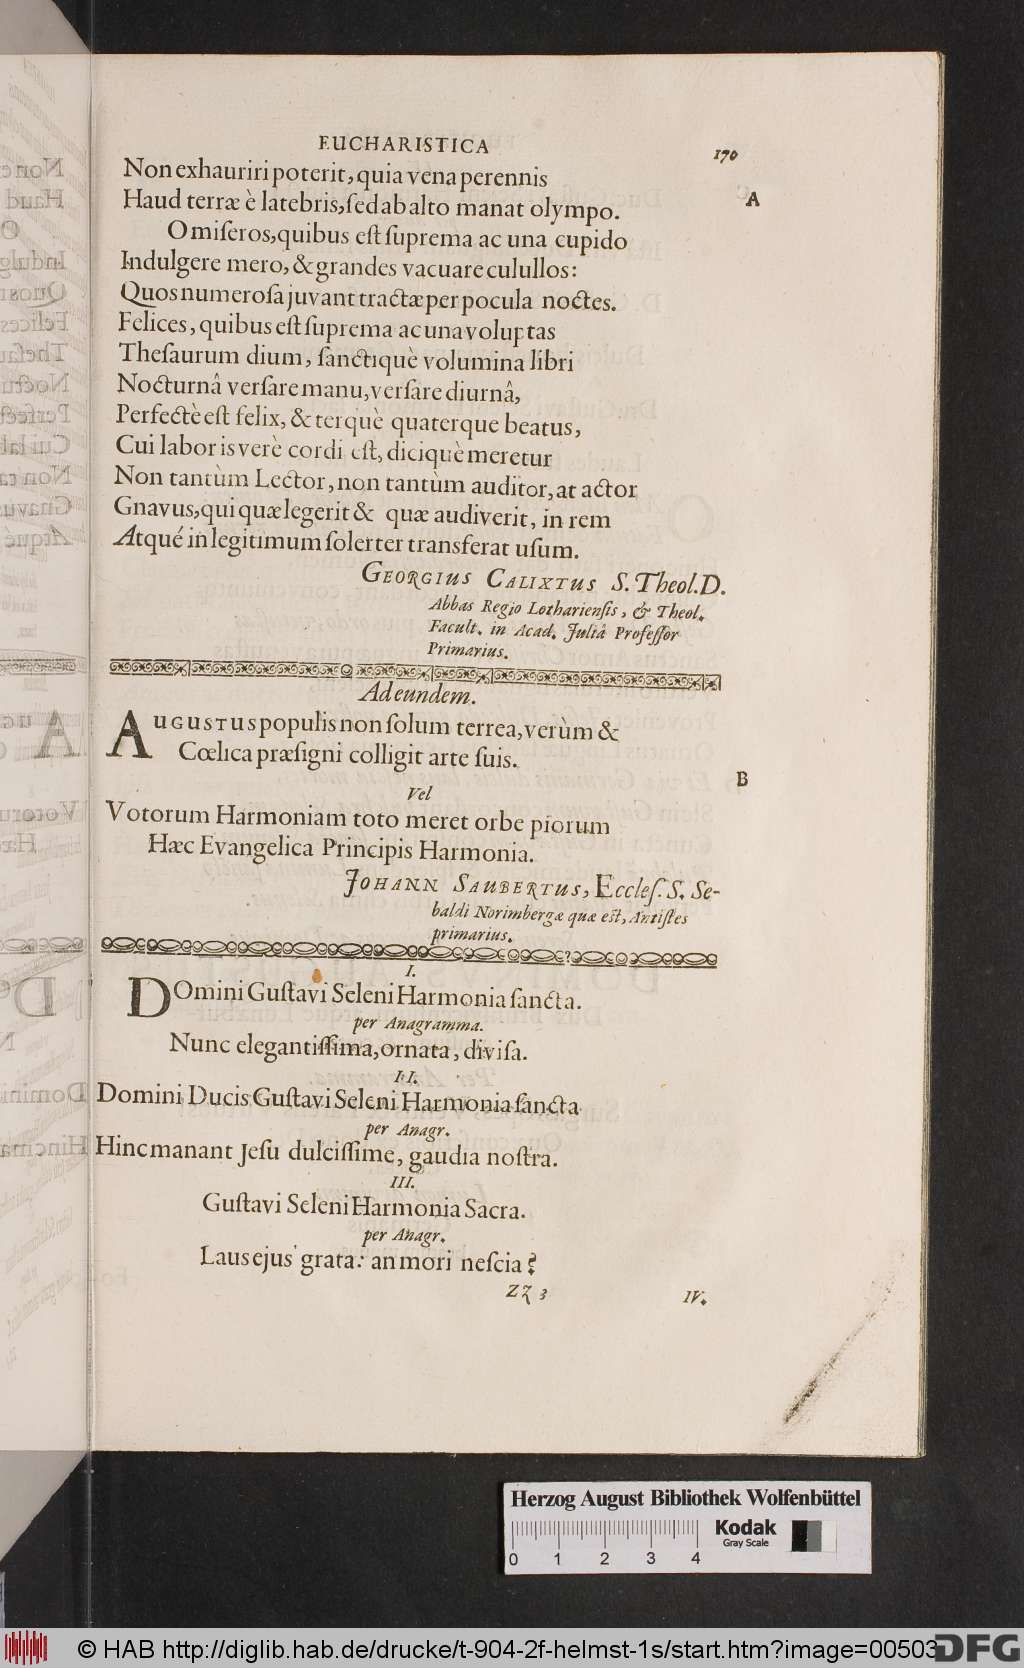 EUCHARISTICA
170
Non exhauriri poterit, quia vena perennis
Haud terræ è latebris, ſed ab alto manat olympo.
A
O miſeros, quibus eſt ſuprema ac una cupido
Indulgere mero, & grandes vacuare culullos:
Quos numeroſa juvant tractæ per pocula noctes.
Felices, quibus eſt ſuprema ac una voluptas
Theſaurum dium, ſanctiquè volumina libri
Nocturnâ verſare manu, verſare diurnâ,
Perfectè eſt felix, & terquè quaterque beatus,
Cui labor is verè cordi eſt, diciquè meretur
Non tantùm Lector, non tantùm auditor, at actor
Gnavus, qui quæ legerit & quæ audiverit, in rem
Atqué in legitimum ſolerter transferat uſum.
GEORGIUS CALIXTUS S. Theol. D.
Abbas Regio Lotharienſis, & Theol.
Facult. in Acad. Juliâ Profeſſor
Primarius.
Ad eundem.
AUGUSTUS populis non ſolum terrea, verùm &
Cœlica præſigni colligit arte ſuis.
B
Vel
Votorum Harmoniam toto meret orbe piorum
Hæc Evangelica Principis Harmonia.
JOHANN SAUBERTUS, Eccleſ. S. Se-
baldi Norimbergæ quæ eſt, Antiſtes
primarius.
I.
DOmini Guſtavi Seleni Harmonia ſancta.
per Anagramma.
Nunc elegantiſſima, ornata, diviſa.
II.
Domini Ducis Guſtavi Seleni Harmonia ſancta
per Anagr.
Hinc manant Jeſu dulciſſime, gaudia noſtra.
III.
Guſtavi Seleni Harmonia Sacra.
per Anagr.
Laus ejus grata: an mori neſcia?
Zz 3
IV.
Herzog August Bibliothek Wolfenbüttel
Kodak
Gray Scale
0 1 2 3 4
© HAB http://diglib.hab.de/drucke/t-904-2f-helmst-1s/start.htm?image=00503
DFG